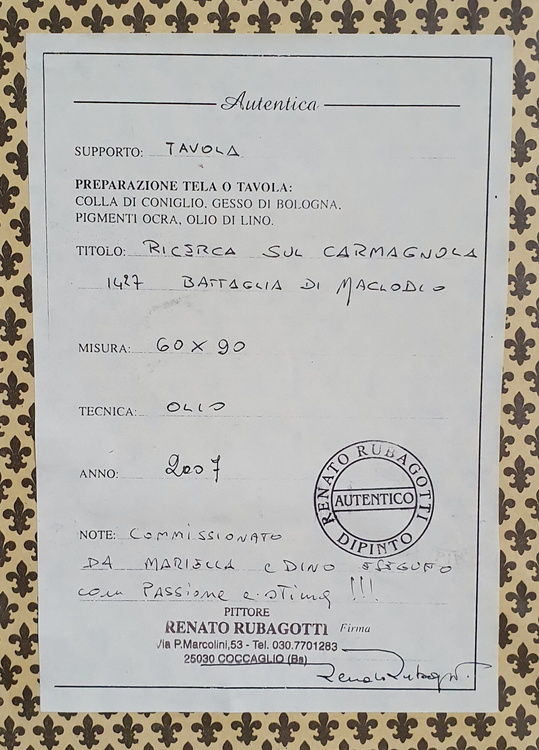 Autentica
SUPPORTO: TAVOLA
PREPARAZIONE TELA O TAVOLA:
COLLA DI CONIGLIO, GESSO DI BOLOGNA,
PIGMENTI OCRA, OLIO DI LINO.
TITOLO: RICERCA SUL CARMAGNOLA
1427 BATTAGLIA DI MACLODIO
MISURA: 60 X 90
TECNICA: OLIO
ANNO: 2007
RENATO RUBAGOTTI
AUTENTICO
DIPINTO
NOTE: COMMISSIONATO
DA MARIELLA e DINO ESEGUITO
con PASSione e stima !!!
PITTORE
RENATO RUBAGOTTI Firma
Via P.Marcolini,53 - Tel. 030.7701283
25030 COCCAGLIO (Bs)
Renato Rubagotti